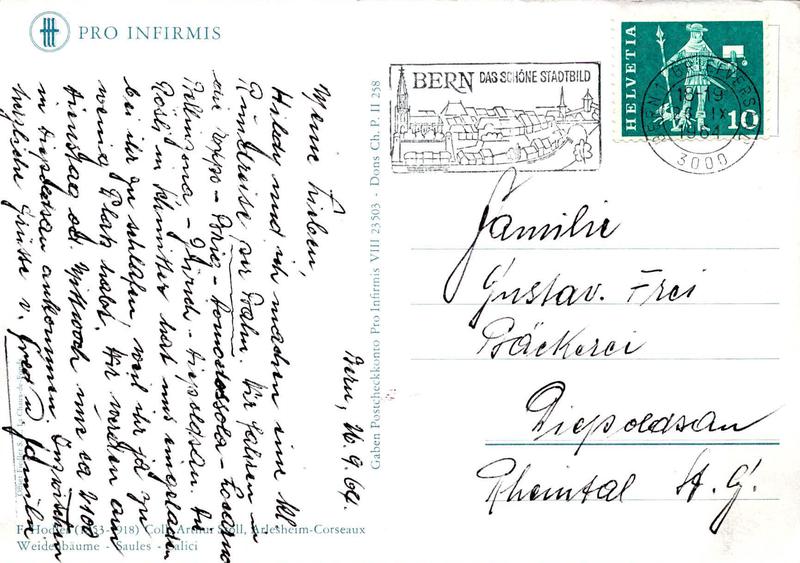 PRO INFIRMIS
BERN DAS SCHÖNE STADTBILD
HELVETIA
10
BERN 1 BRIEFVERS
18-19
IX
1964
3000
Familie
Gustav. Frei
Bäckerei
Diepoldsau
Rheintal St. G.
Gaben Postcheckkonto Pro Infirmis VIII 23503 - Dons Ch. P. II 258
Bern, 16.9.64.
Meine Lieben,
Hilde und ich machen eine kl
Rundreise per Bahn. Wir fahren
Brig - Domodossola - Locarno
Bellinzona - Zürich - Diepoldsau. Da
Rösly im Schmitter hat uns eingeladen
bei ihr zu schlafen, weil ihr ja zu
wenig Platz habt. Wir werden am
Dienstag od. Mittwoch um ca 2100
in Diepoldsau ankommen. Inzwischen
herzliche Grüsse v. Fred u Familie
F. Hodler (1853-1918) Coll. Arthur Stoll, Arlesheim-Corseaux
Weidenbäume - Saules - Salici